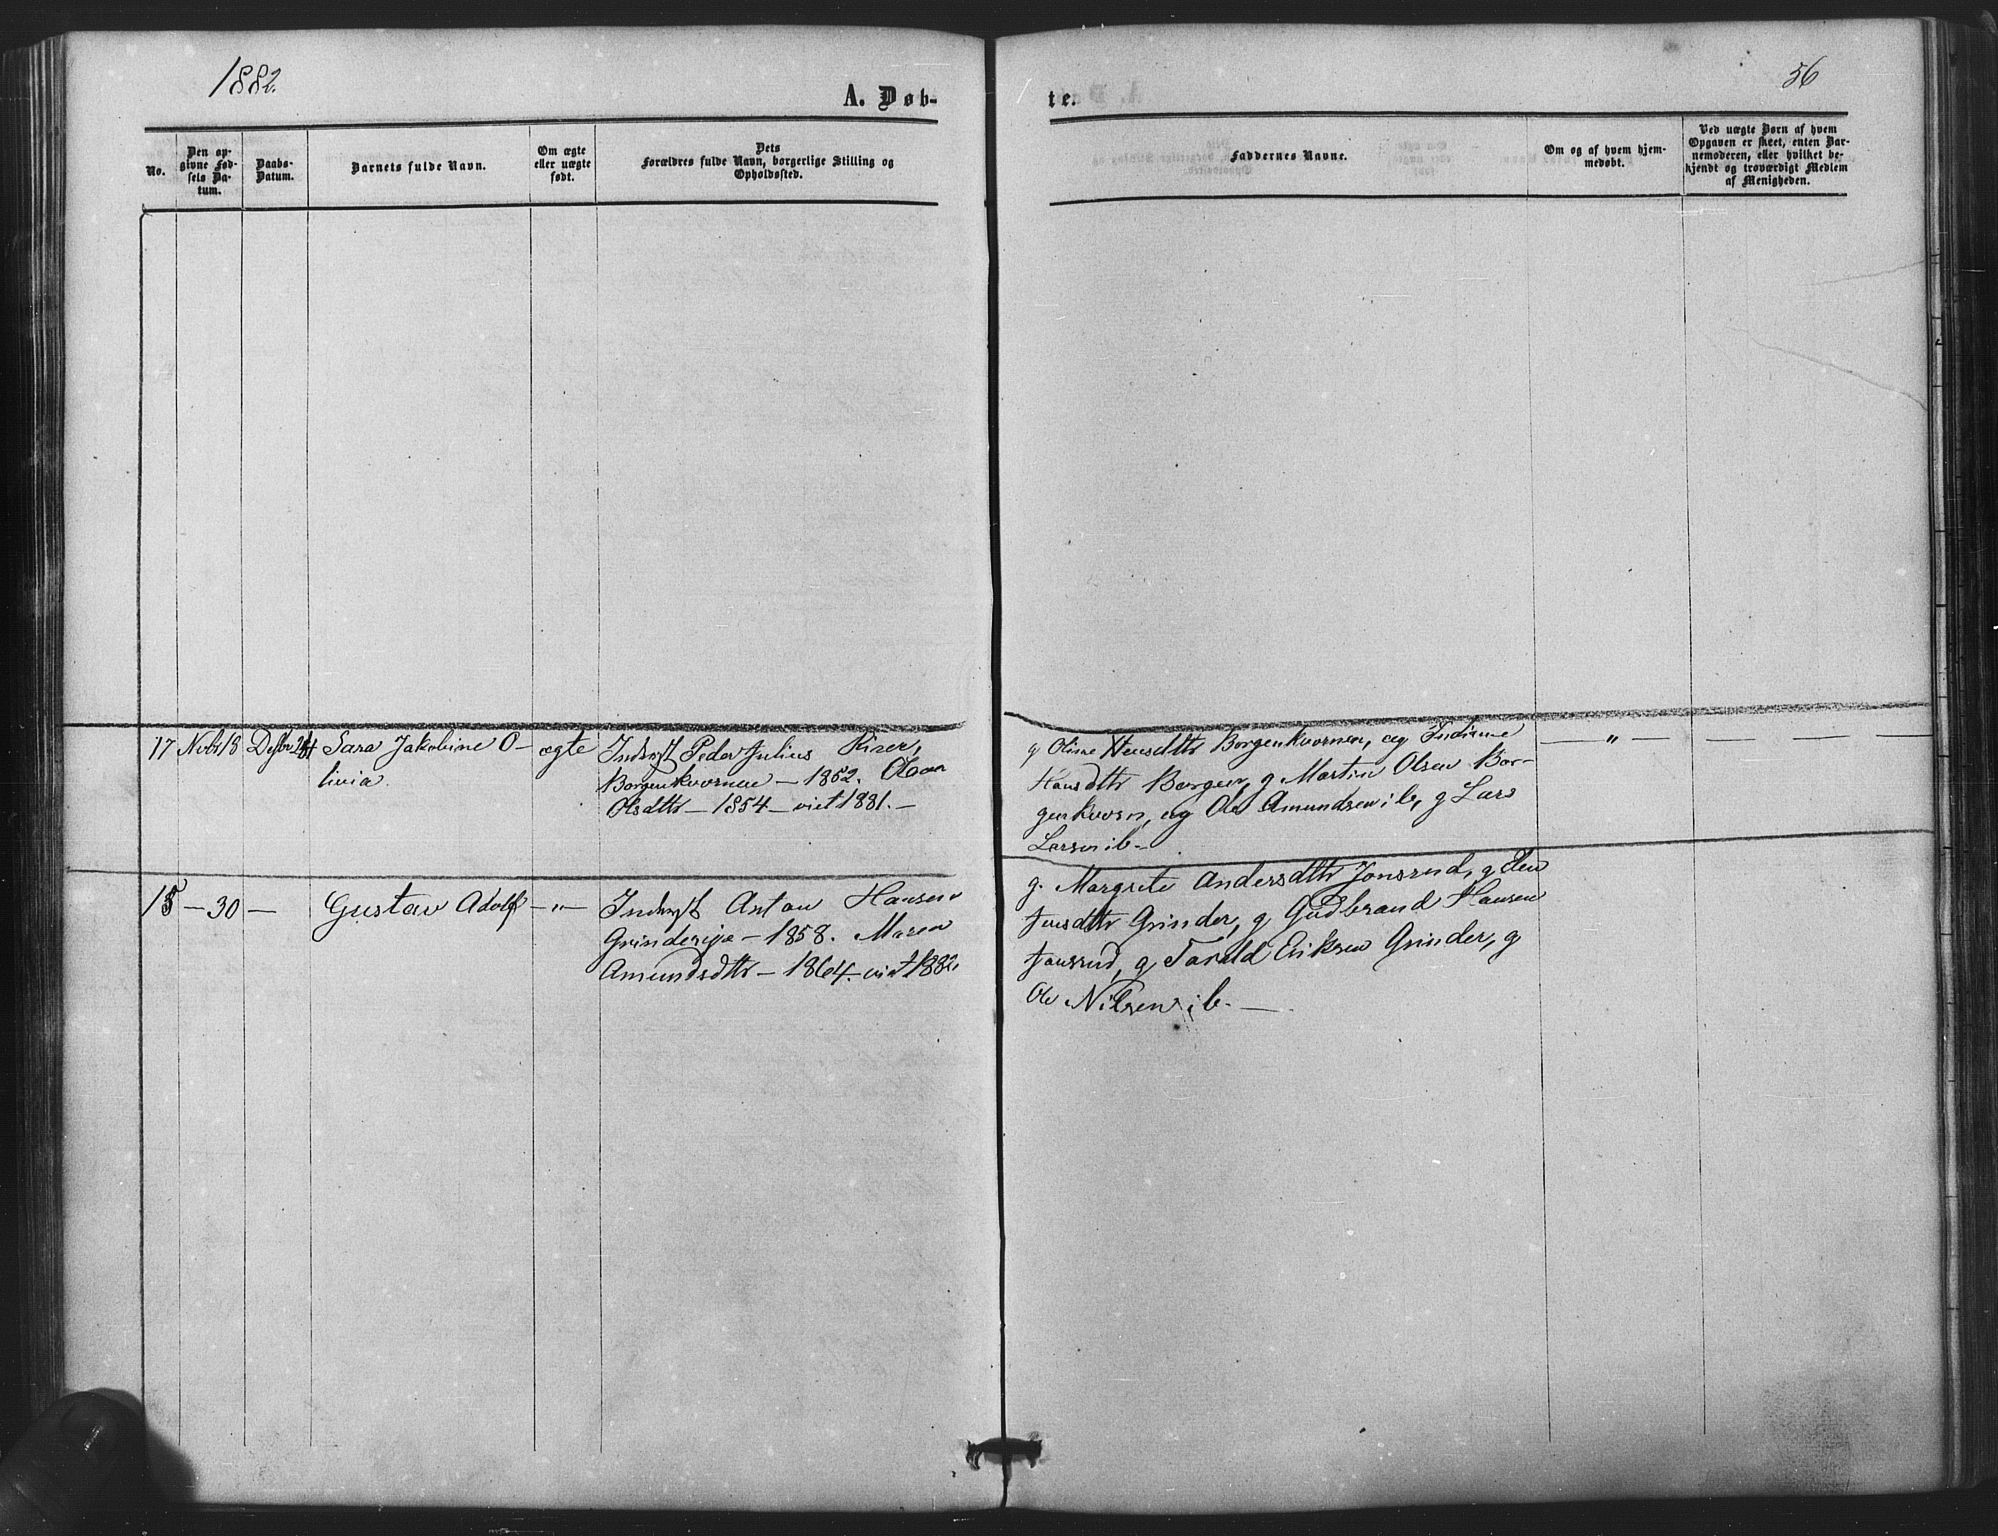 1882.
56
A. Døb-
te.
No.
Den op-
givne Fød-
sels Da-
tum.
Daabs-
Datum.
Barnets fulde Navn.
Om ægte
eller uægte
født.
Dets
Forældres fulde Navn, borgerlige Stilling og
Opholdssted.
Faddernes Navne.
Om og af hvem hjem-
medøbt.
Ved uægte Børn af hvem
Opgaven er skeet, enten Bar-
nemoderen, eller hvilket be-
kjendt og troværdigt Medlem
af Menigheden.
17 Novbr 18 Desbr 24 Sara Jakobine O-
livia.
ægte
Indryst Peder Julius
Borgenkvernen - 1852.
Olsdttr - 1854 - viet 1881. -
g Oline Hansdttr Borgenkvernen, og
Hansdttr Borgen, g Martin Olsen Bor-
genkvern, og Ole Amundsen i b, g Lars
Larsen i b. -
— " — — — — —
18 - 30 - Gustav Adolf - " -
Indryst Anton Hansen
Grindereje - 1858. Maren
Amundsdttr - 1864 - viet 1882.
g. Margrete Andersdttr Jonsrud, g
Jensdttr Grinder, g Gudbrand Hansen
Jonsrud, g Tarald Eriksen Grinder, g
Ole Nilsen i b. -